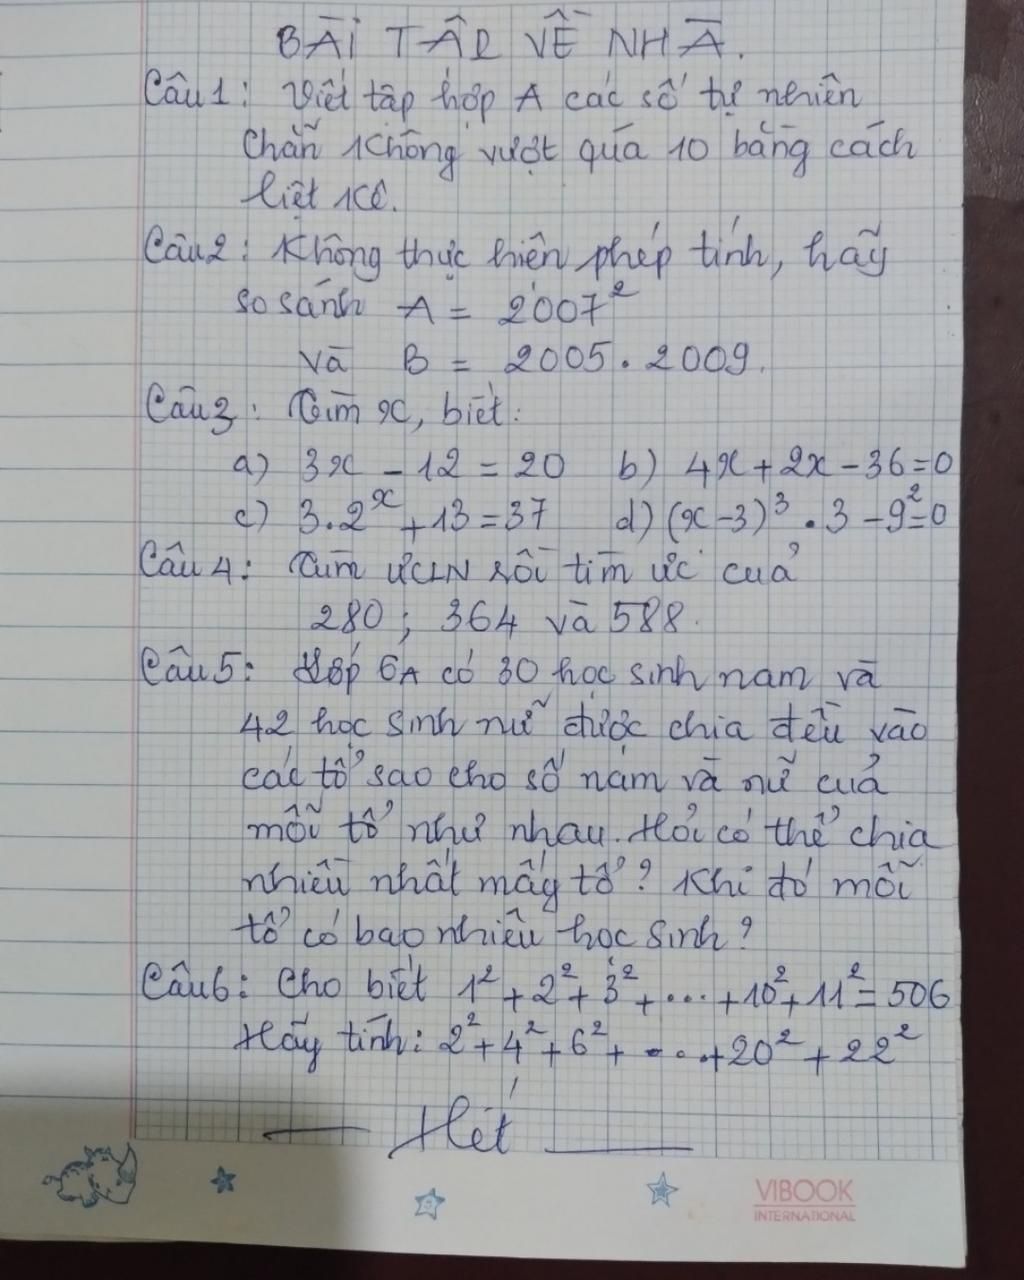 BÀI TẬP VỀ NHÀ.
Câu 1: Viết tập hợp A các số tự nhiên
Chẵn không vượt quá 10 bằng cách
liệt kê.
Câu 2: Không thực hiện phép tính, hãy
so sánh A = 2007²
và B = 2005.2009.
Câu 3: Tìm x, biết:
a) 3x - 12 = 20 b) 4x + 2x - 36 = 0
c) 3.2ˣ + 13 = 37 d) (x - 3)³ . 3 - 9² = 0
Câu 4: Tìm ƯCLN rồi tìm ước của
280; 364 và 588.
Câu 5: Lớp 6A có 30 học sinh nam và
42 học sinh nữ được chia đều vào
các tổ sao cho số nam và nữ của
mỗi tổ như nhau. Hỏi có thể chia
nhiều nhất mấy tổ? Khi đó mỗi
tổ có bao nhiêu học sinh?
Câu 6: Cho biết 1² + 2² + 3² + ... + 10² + 11² = 506
Hãy tính: 2² + 4² + 6² + ... + 20² + 22²
— Hết —
VIBOOK
INTERNATIONAL